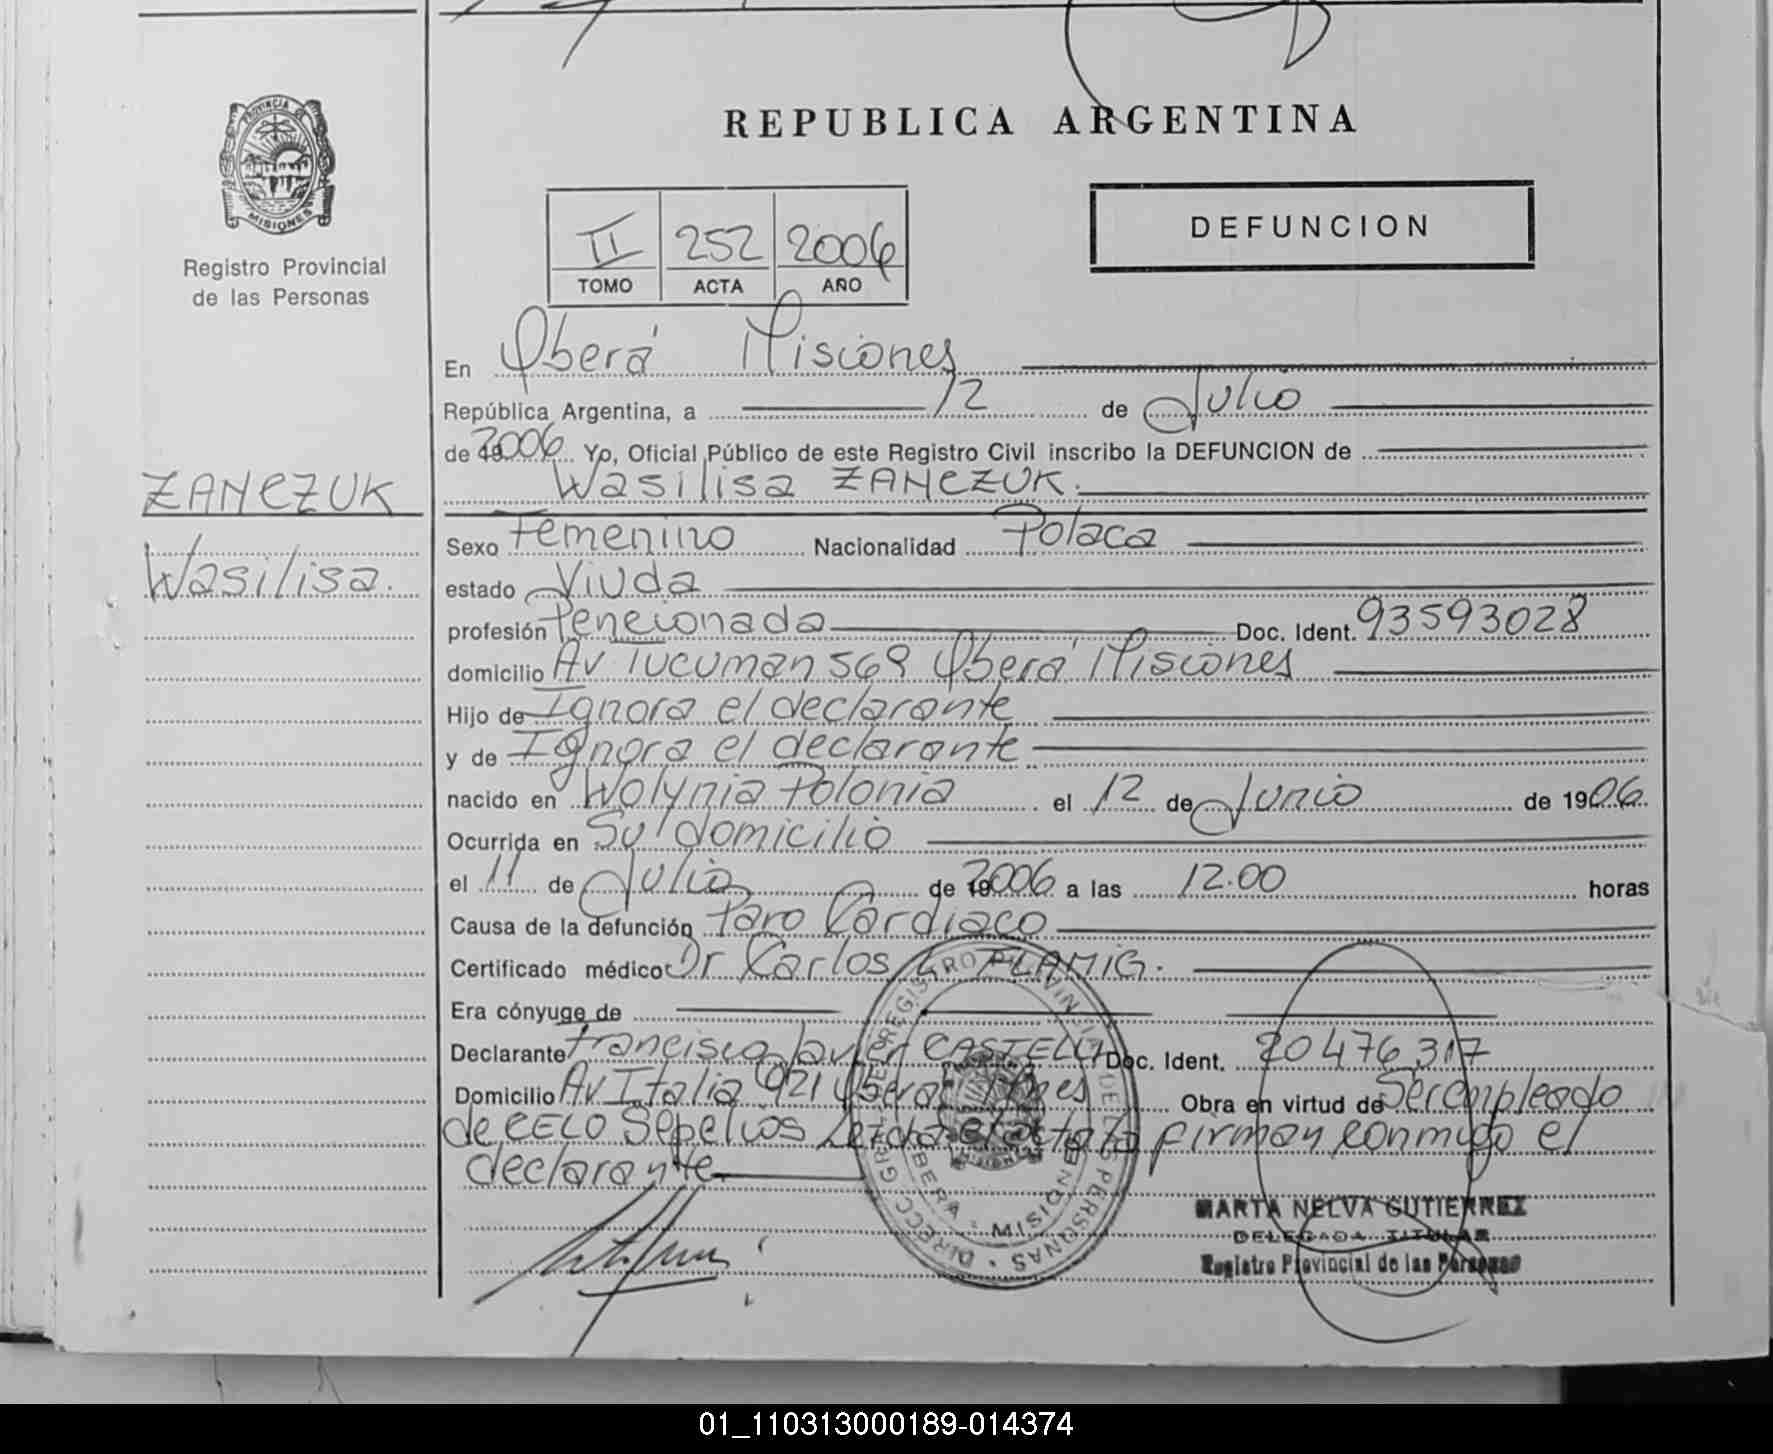 REPUBLICA ARGENTINA
PROVINCIA DE MISIONES
Registro Provincial
de las Personas
II 252 2006
TOMO ACTA AÑO
DEFUNCION
En Oberá Misiones
República Argentina, a 12 de Julio
de 2006 Yo, Oficial Público de este Registro Civil inscribo la DEFUNCION de
Wasilisa ZANCZUK.
ZANCZUK
Wasilisa.
Sexo Femenino Nacionalidad Polaca
estado Viuda
profesión Pencionada Doc. Ident. 93593028
domicilio Av Tucuman 569 Oberá Misiones
Hijo de Ignora el declarante
y de Ignora el declarante
nacido en Wolynia Polonia el 12 de Junio de 1906
Ocurrida en Su domicilio
el 11 de Julio de 2006 a las 12.00 horas
Causa de la defunción Paro Cardiaco
Certificado médico: Dr Carlos FLAMIG.
Era cónyuge de
Declarante Francisco Javier CASTELLI Doc. Ident. 20476317
Domicilio Av Italia 921 Oberá Mnes Obra en virtud de Ser empleado
de CELO Sepelios Leida el acta la firman conmigo el
declarante
DIRECC. GRAL. DE REGISTRO PROVINCIAL DE LAS PERSONAS
OBERA - MISIONES
MARTA NELVA GUTIERREZ
DELEGADA TITULAR
Registro Provincial de las Personas
01_110313000189-014374